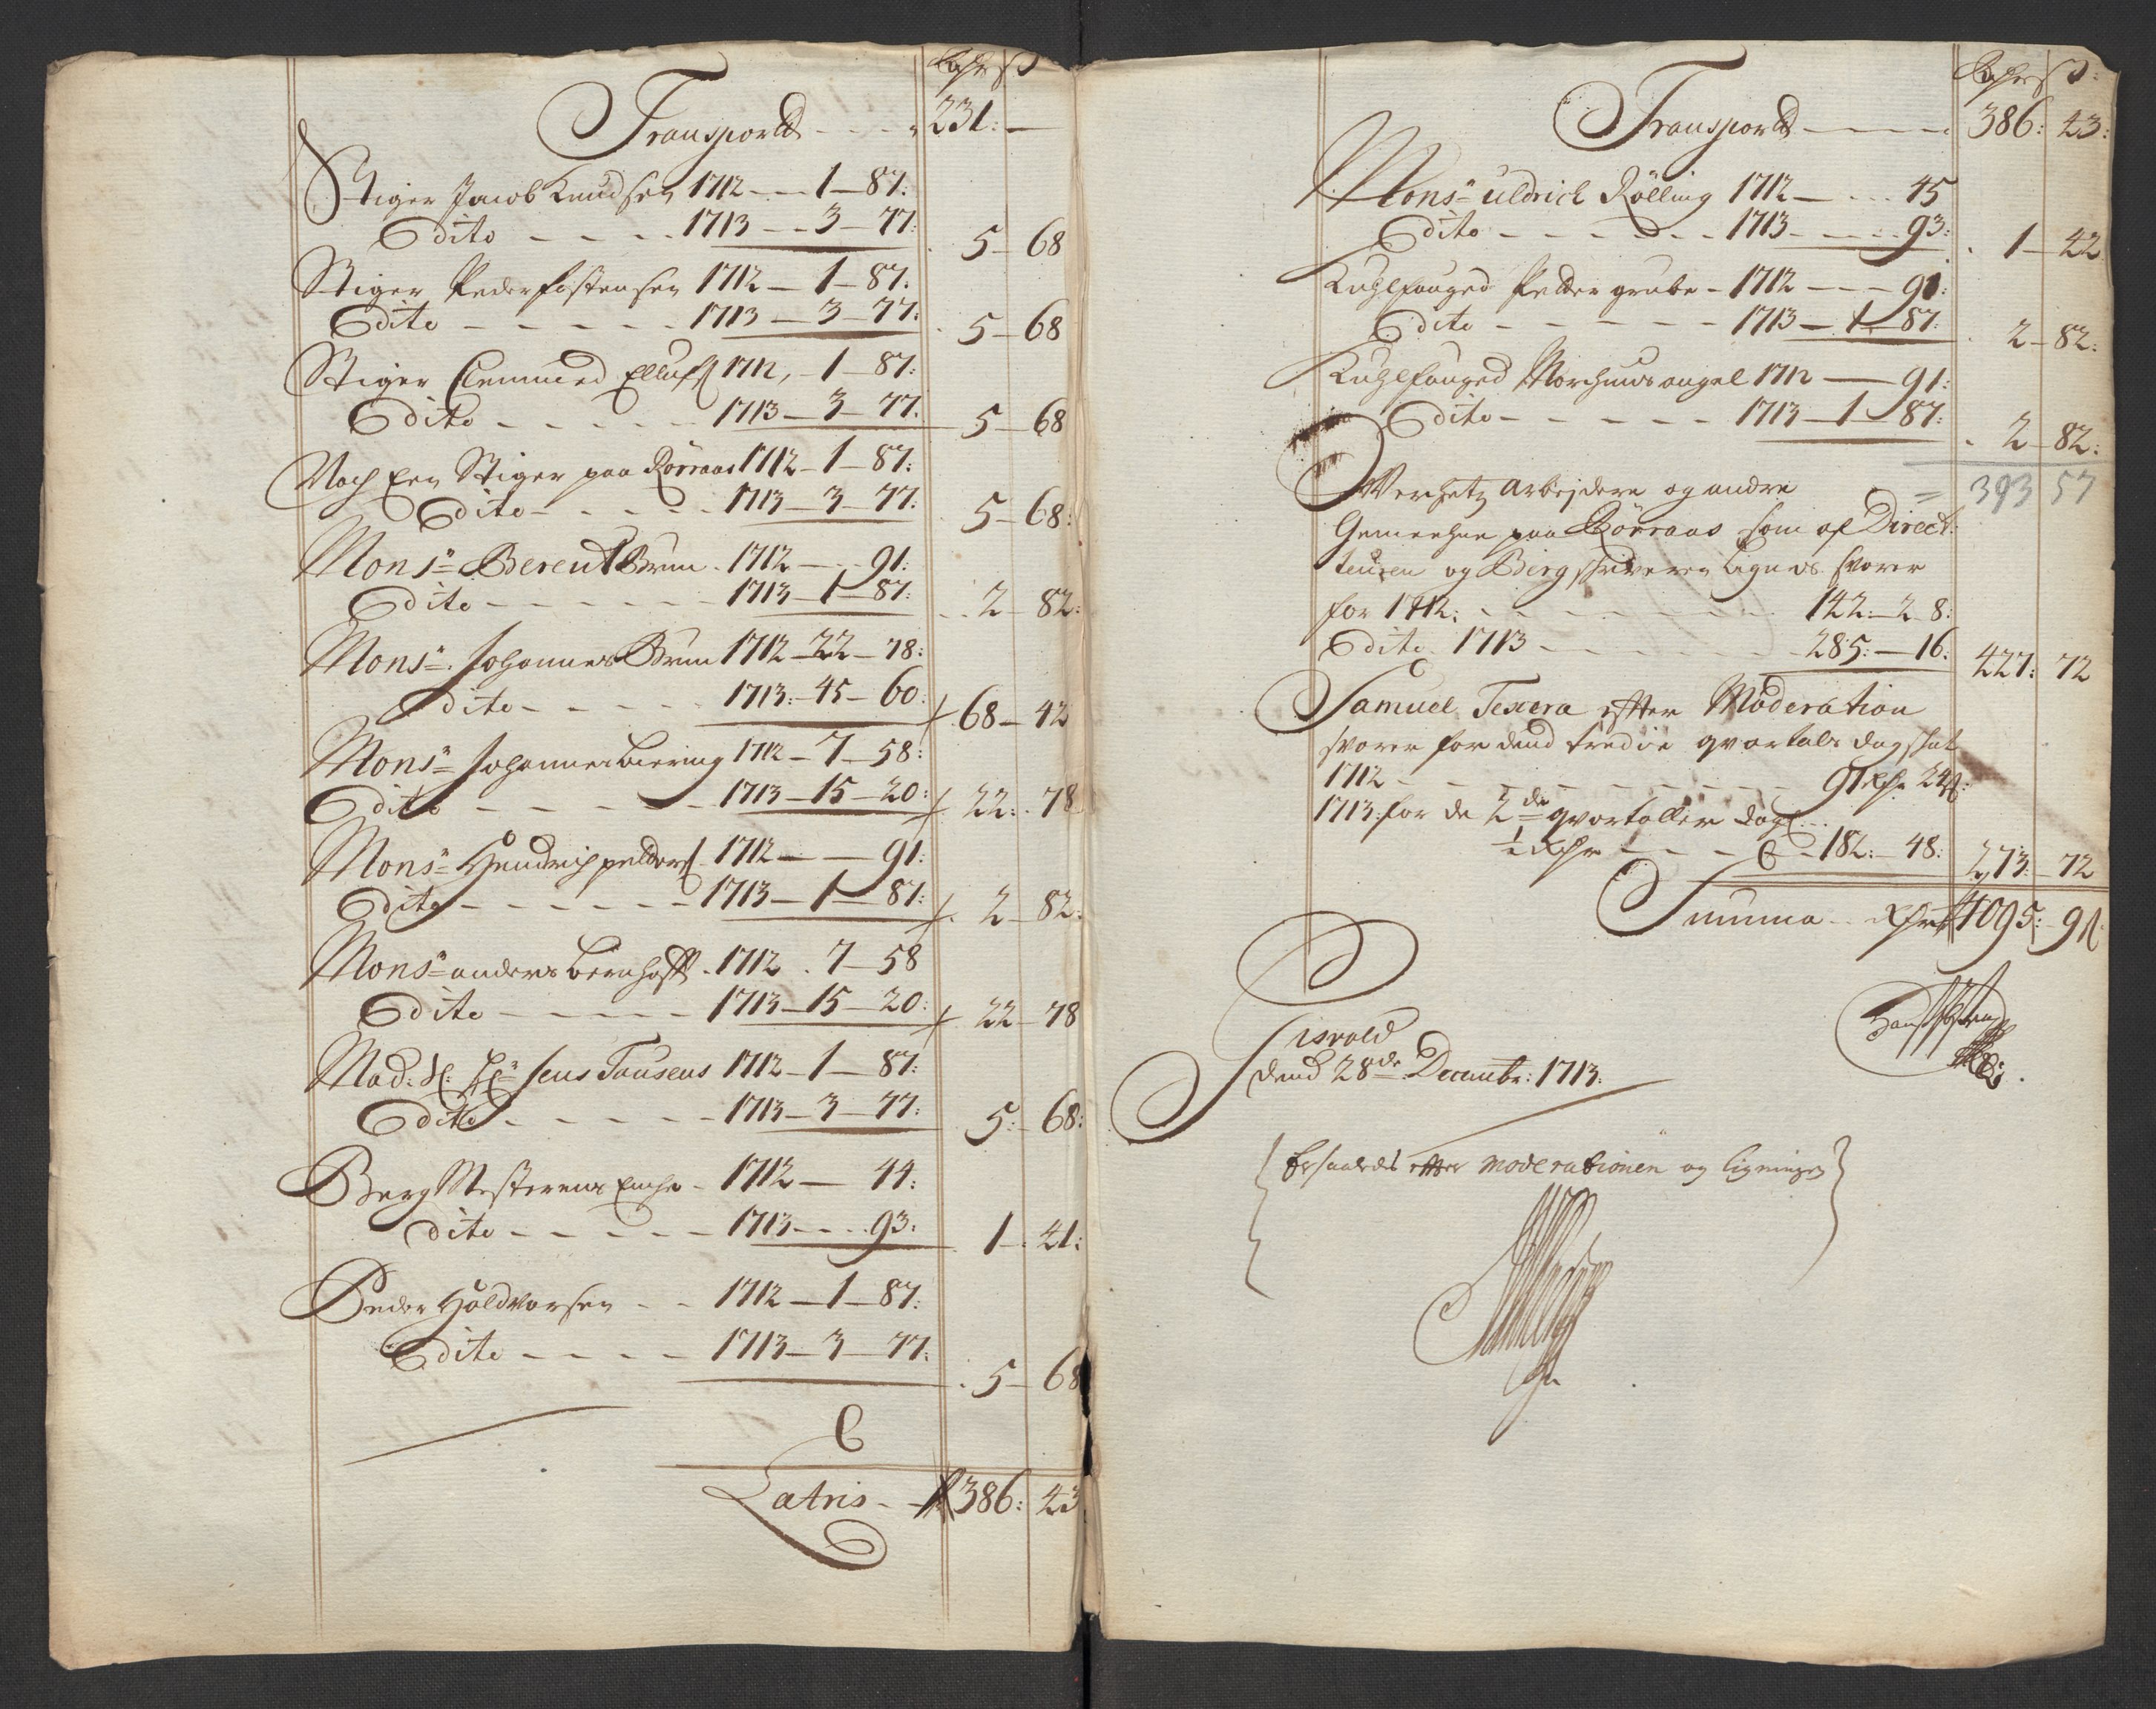 Rdhr ß
Transport - - - 231: —
Stiger Jacob Knudsen 1712 — 1 — 87:
Dito - - - - 1713 — 3 — 77: 5 — 68
Stiger Peder Fostensen 1712 — 1 — 87:
Dito - - - - 1713 — 3 — 77: 5 — 68
Stiger Clemmed Elluf 1712, — 1 — 87:
Dito - - - - 1713 — 3 — 77: 5 — 68
Noch Een Stiger paa Rørraas 1712 — 1 — 87:
Dito - - - - 1713 — 3 — 77: 5 — 68:
Mons:r Berent Brun 1712 — 91:
Dito - - - - 1713 — 1 — 87: 2 — 82:
Mons:r Johannes Brun 1712 — 22 — 78:
Dito - - - - 1713: — 45 — 60: 68 — 42
Mons:r Johannes Biering 1712 — 7 — 58:
Dito - - - - 1713 — 15 — 20: 22: 78
Mons:r Hendrich 1712 — 91:
Dito - - - - 1713 — 1 — 87: 2 — 82:
Mons:r anders Bernhoft 1712 . 7 — 58
Dito - - - - 1713 — 15 — 20: 22 — 78
Mad: Jens Tausens 1712 — 1 — 87:
Dito - - - - 1713 — 3 — 77: 5: — 68:
Berg Mesterens Enche 1712 — 44:
Dito - - - - 1713 - - - 93: 1 — 41:
Peder Haldvorsen - - 1712 — 1 — 87:
Dito - - - - 1713 — 3 — 77: 5 — 68
Latris - - 386: 43
Rdhr ß:
Transport - - - 386: 43:
Mons:r Uldrich Rølling 1712 — - - 45
Dito - - - - 1713 - - - 93: 1 — 42
Kuhlfouged Peder grube - 1712 - - - 91:
Dito - - - - 1713 — 1 — 87: 2 — 82:
Kuhlfouged 1712 — 91:
Dito - - - - 1713 — 1 — 87: 2 — 82:
= 393 57
Werchetz Arbejdere og andre
Gemeehne paa Rørraas som af Direct:
teuren og Bergschriveren lignes svarer
for 1712: - - - - 142: — 2 — 8:
Dito 1713 - - - - 285: — 16: 427: 72
Samuel Texera efter Moderation
svarer for dend tredie qvartals dagskat
1712 - - - - 91 Rdhr 24 ß:
1713: for de 2de qvartaller dagl
½ Rdhr - - - - 182: — 48: 273: — 72
Summa - - Rdhr 1095: — 91.
dend 28de Decembr: 1713.
Ersaaledes efter moderationen og ligningen